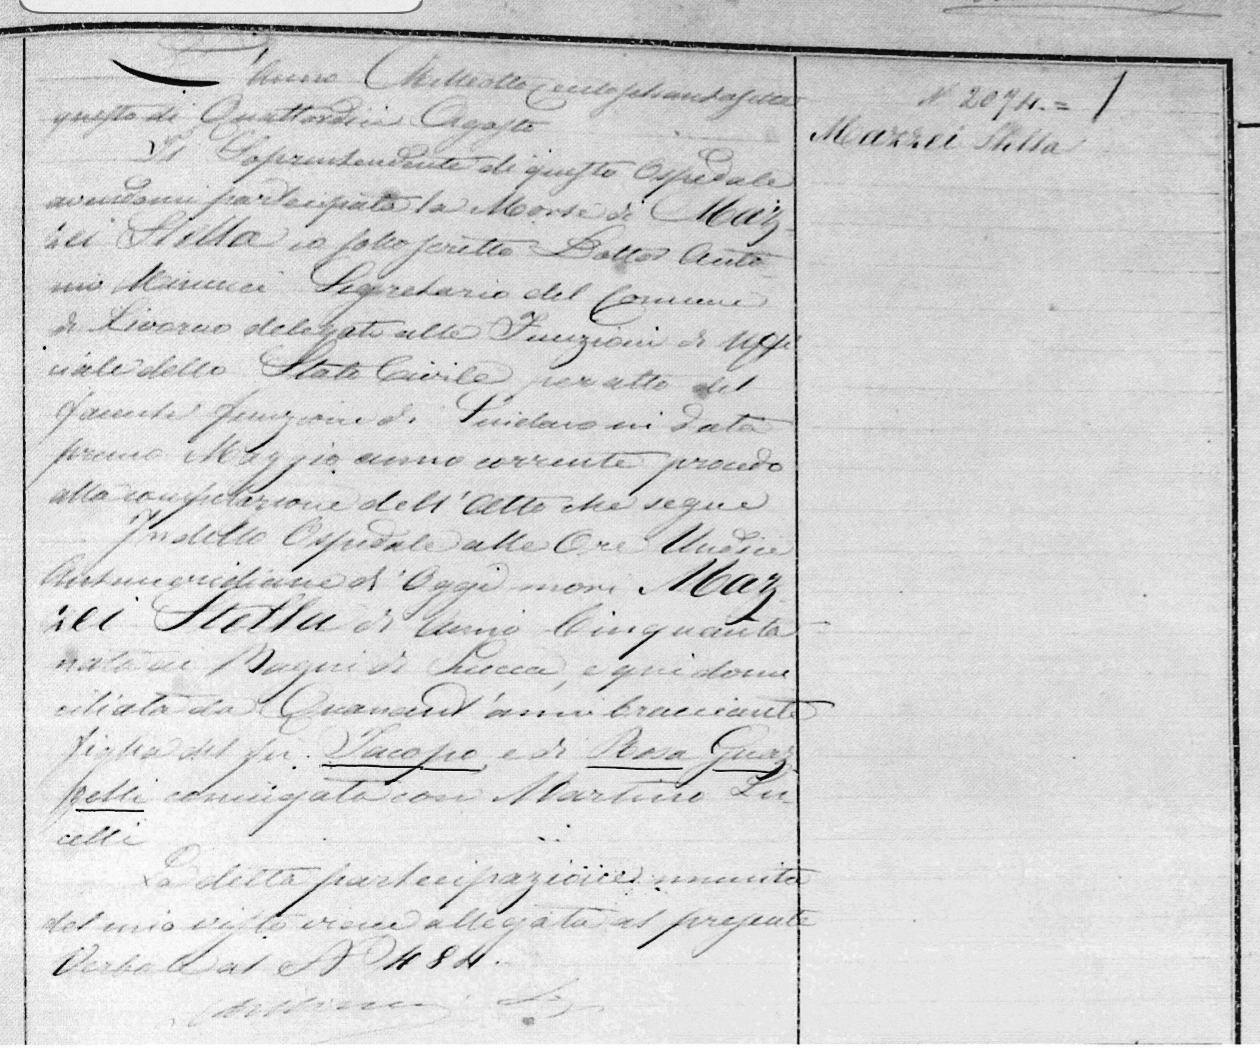 L'Anno Milleottocentosettantasette
questo dì Quattordici Agosto
Il Soprintendente di questo Ospedale
avendomi partecipata la Morte di Maz-
zei Stella io sottoscritto Dottor Anto-
nio Minucci Segretario del Comune
di Livorno delegato alle Funzioni di Uffi
ciale dello Stato Civile per atto del
facente funzione di Sindaco in data
primo Maggio anno corrente procedo
alla compilazione dell'Atto che segue
In detto Ospedale alle Ore Undici
Antimeridiane d'Oggi morì Maz-
zei Stella di Anni Cinquanta
nata ai Bagni di Lucca, e qui domi
ciliata da Quarant'anni bracciante
figlia del fu Jacopo e di Rosa Guaz-
pelli coniugata con Martino Lu-
celli
La detta partecipazione munita
del mio visto viene allegata al presente
Verbale al N° 484.
N. 2074.=
Mazzei Stella